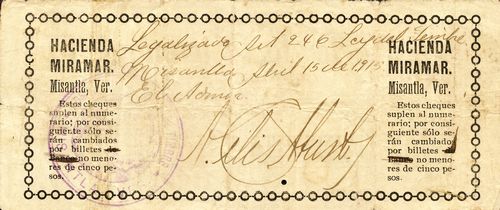 HACIENDA
MIRAMAR.
Misantla, Ver.
Estos cheques
suplen al nume-
rario; por consi-
guiente sólo se-
rán cambiados
por billetes de
no meno-
res de cinco pe-
sos.
Legalizado Art 246 Ley del Timbre
Misantla Abril 15 de 1915
El
HACIENDA
MIRAMAR.
Misantla, Ver.
Estos cheques
suplen al nume-
rario; por con-
siguiente sólo
serán cambiados
por billetes de
no meno-
res de cinco pe-
sos.